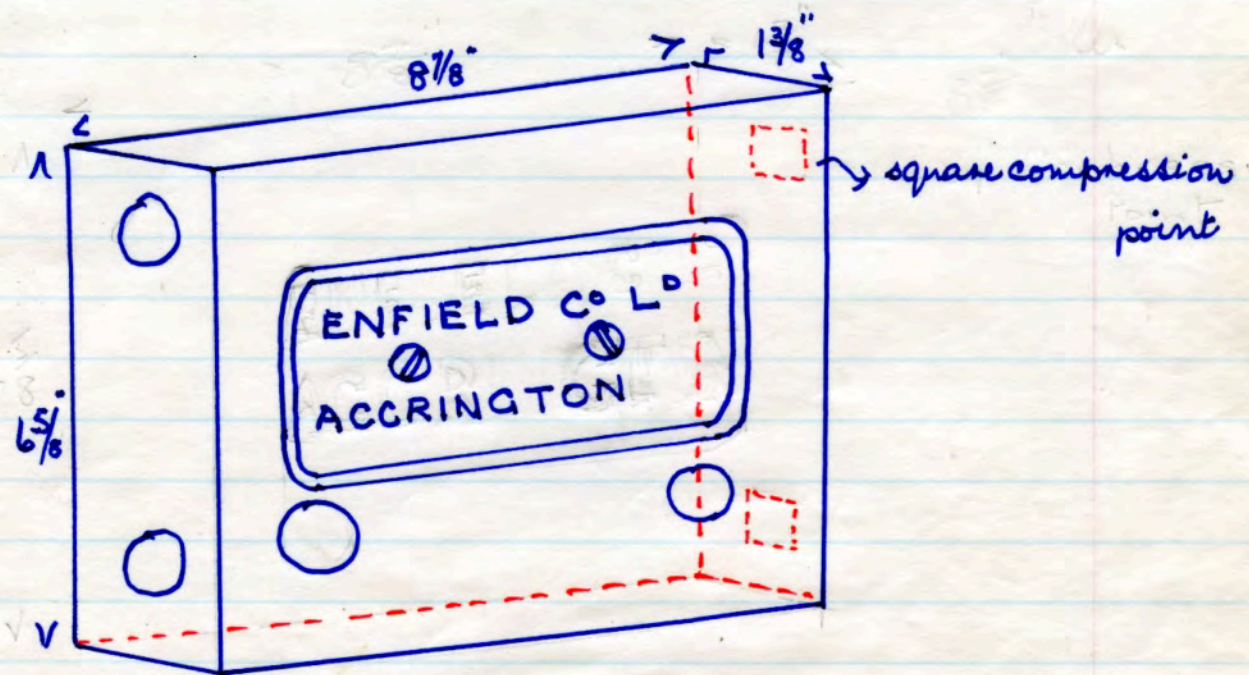 8 7/8"
1 3/8"
square compression
point
ENFIELD Cº Lᴰ
ACCRINGTON
6 5/8"